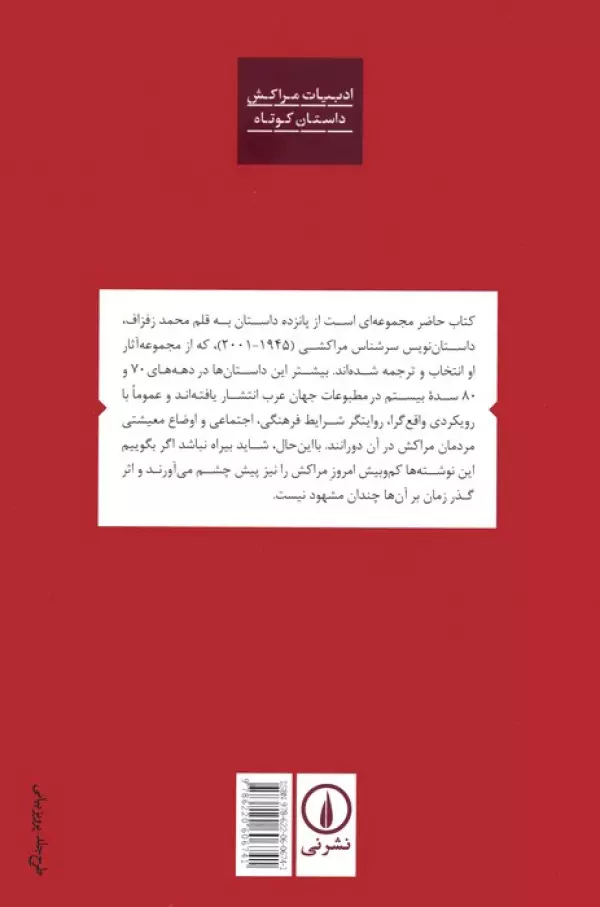 ادبیات مراکش
داستان کوتاه
کتاب حاضر مجموعه‌ای است از پانزده داستان به قلم محمد زفزاف،
داستان‌نویس سرشناس مراکشی (۱۹۴۵-۲۰۰۱)، که از مجموعه‌آثار
او انتخاب و ترجمه شده‌اند. بیشتر این داستان‌ها در دهه‌های ۷۰ و
۸۰ سدهٔ بیستم در مطبوعات جهان عرب انتشار یافته‌اند و عموماً با
رویکردی واقع‌گرا، روایتگر شرایط فرهنگی، اجتماعی و اوضاع معیشتی
مردمان مراکش در آن دورانند. بااین‌حال، شاید بیراه نباشد اگر بگوییم
این نوشته‌ها کم‌وبیش امروزِ مراکش را نیز پیش چشم می‌آورند و اثر
گذر زمان بر آن‌ها چندان مشهود نیست.
نشرنی
ISBN 978-622-06-0674-1
9786220606741
طرح جلد: پرویز بیانی